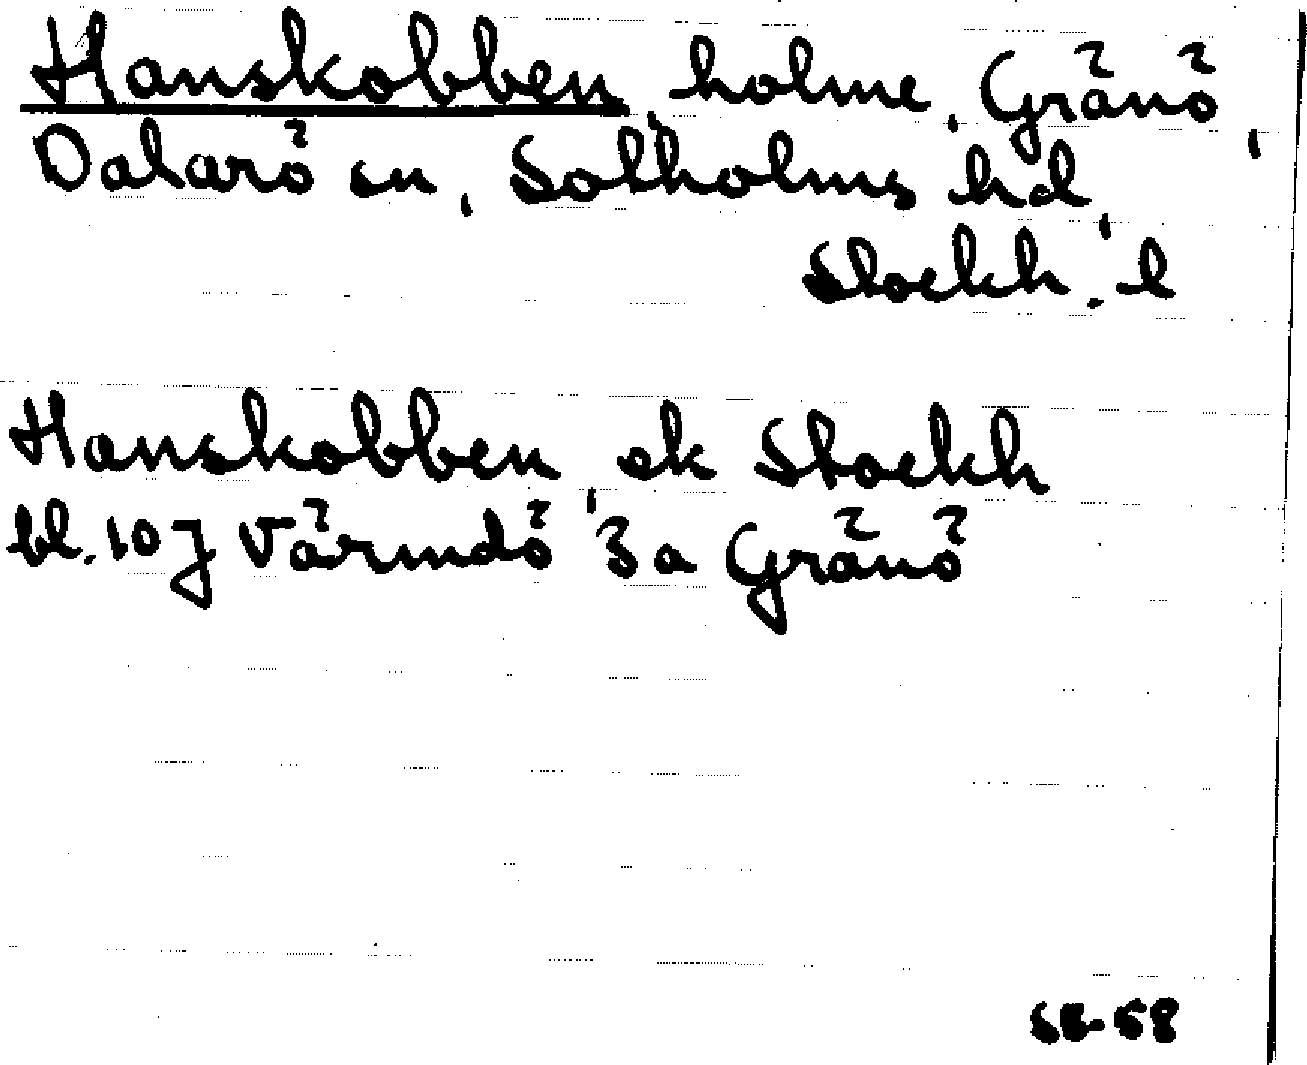 Hanskobben, holme, Gränö,
Dalarö sn, Sotholms hd,
Stockh. l
Hanskobben, ek Stockh
bl. 107 Värmdö 3a Gränö